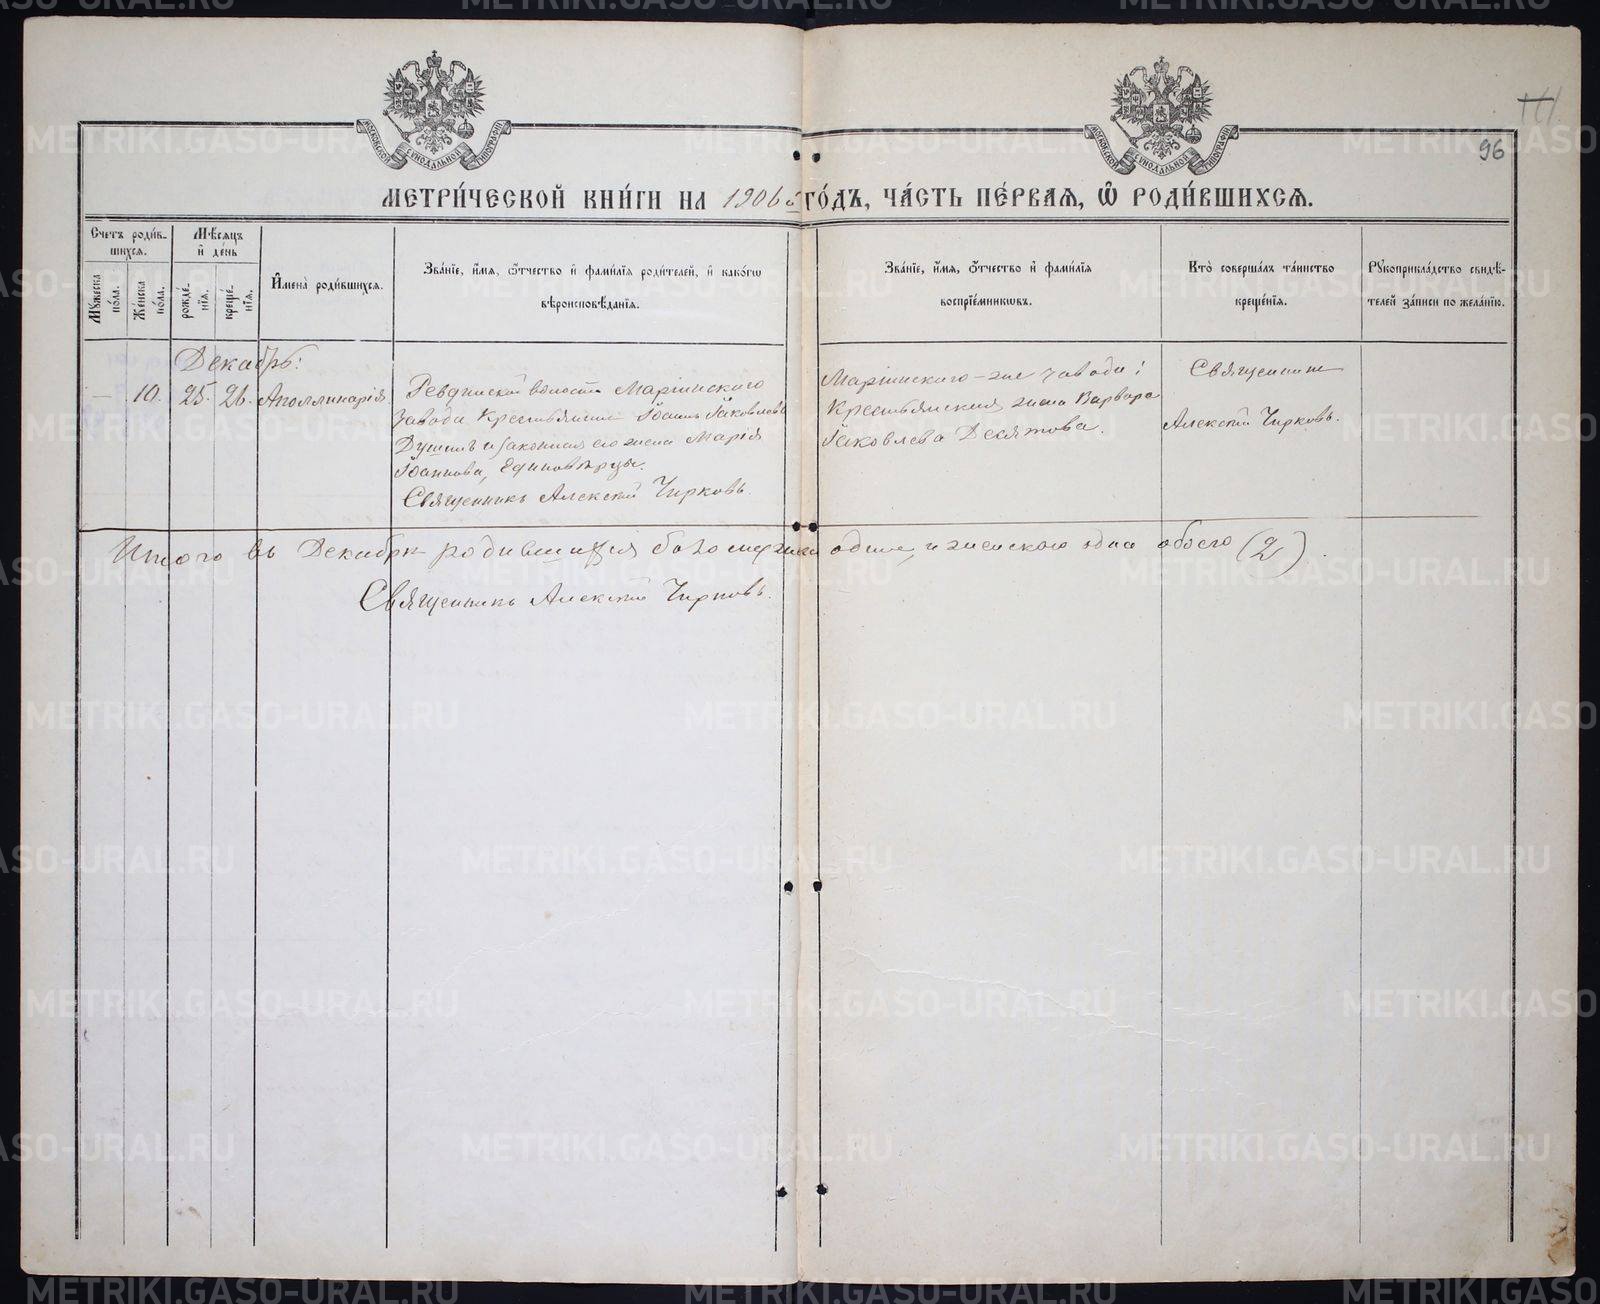 111
96
МОСКОВСКОЙ СѴНОДАЛЬНОЙ ТИПОГРАФІИ
МОСКОВСКОЙ СѴНОДАЛЬНОЙ ТИПОГРАФІИ
МЕТРИ́ЧЕСКОЙ КНИ́ГИ НА 1906й ГО́ДЪ, ЧА́СТЬ ПЕ́РВАЯ, Ѽ РОДИ́ВШИХСЯ.
Счетъ роди́в-
шихся.
Му́жеска по́ла.
Же́нска по́ла.
Мѣ́сяцъ
и҆ де́нь
рожде́нїя.
креще́нїя.
И҆мена̀ роди́вшихся.
Зва́нїе, и҆́мя, ѻ҆́тчество и҆ фами́лїя роди́телей, и҆ како́гѡ
вѣроисповѣ́данїя.
Зва́нїе, и҆́мя, ѻ҆́тчество и҆ фами́лїя
воспрїе́мникѡвъ.
Кто̀ соверша́лъ та́инство
креще́нїя.
Рꙋкоприкла́дство свидѣ́-
телей за́писи по жела́нїю.
Декабрь:
— 10. 25. 26. Аполлинарія.
Ревдинской волости Маріинского
завода Крестьянинъ Іоаннъ Іаковлевъ
Душинъ и законная его жена Марія
Іоаннова, Единовѣрцы.
Священникъ Алексій Чирковъ.
Маріинского-же завода;
Крестьянская жена Варвара
Іаковлева Десятова.
Священникъ
Алексій Чирковъ.
Итого въ Декабрѣ родившихся было мужска одинъ, и женского одна обоего (2).
Священникъ Алексій Чирковъ.
METRIKI.GASO-URAL.RU